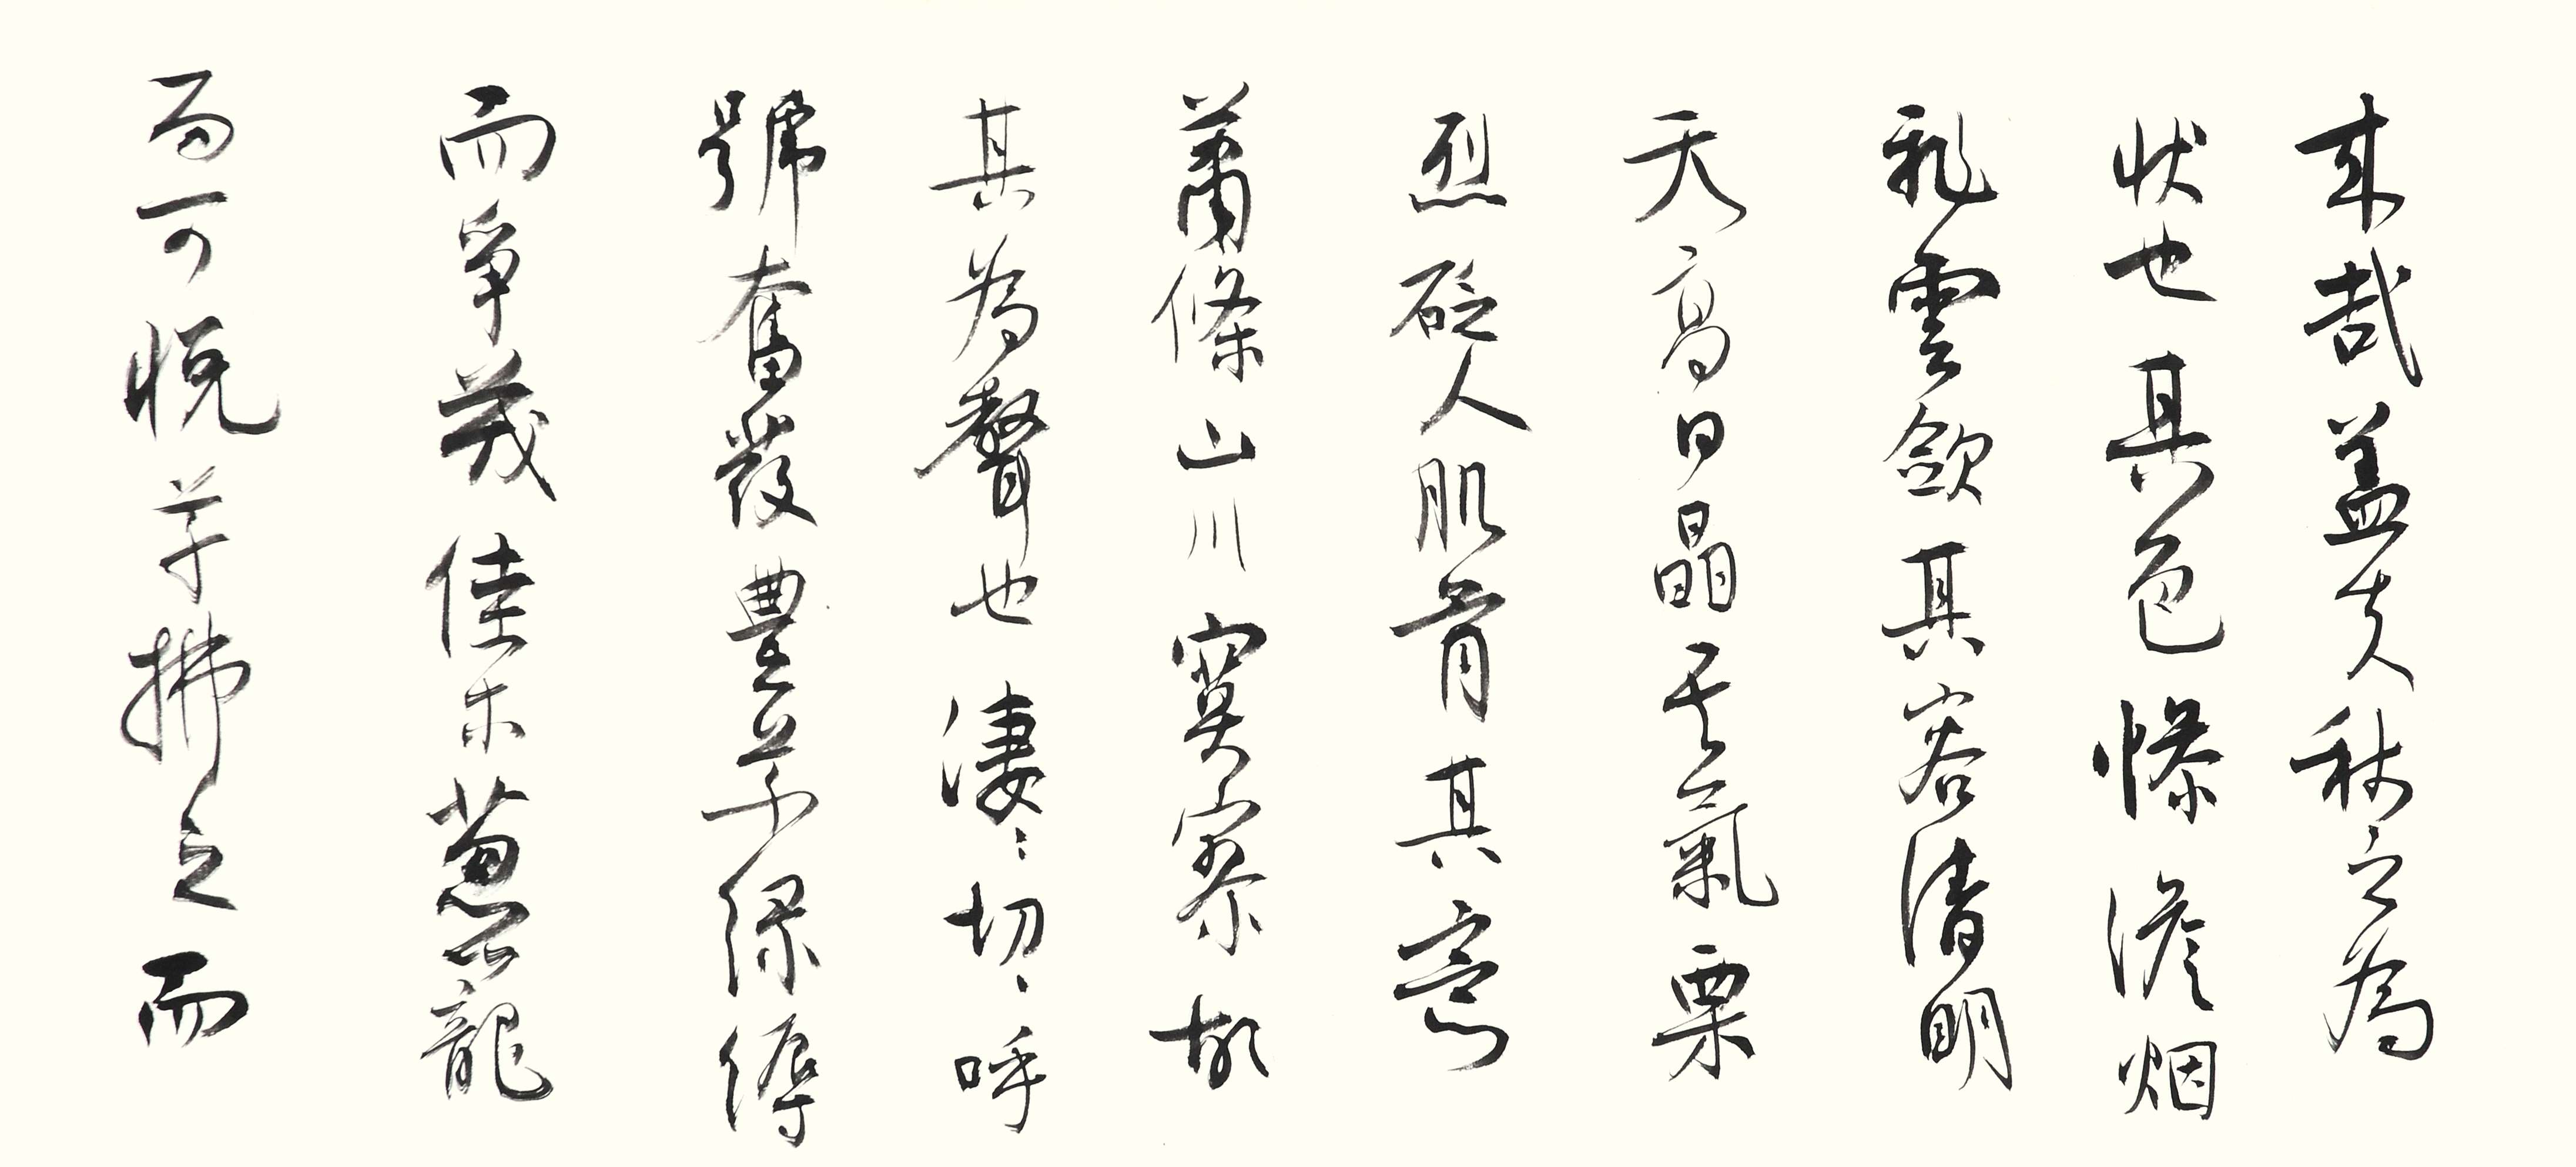 来哉蓋夫秋之為
状也其色惨澹烟
雲歛其容清明
天高日晶其氣栗
烈砭人肌骨其意
蕭條山川寞寥故
其為聲也淒〻切〻呼
號奮發豊草緑縟
而爭茂佳木葱蘢
而可悦草拂之而